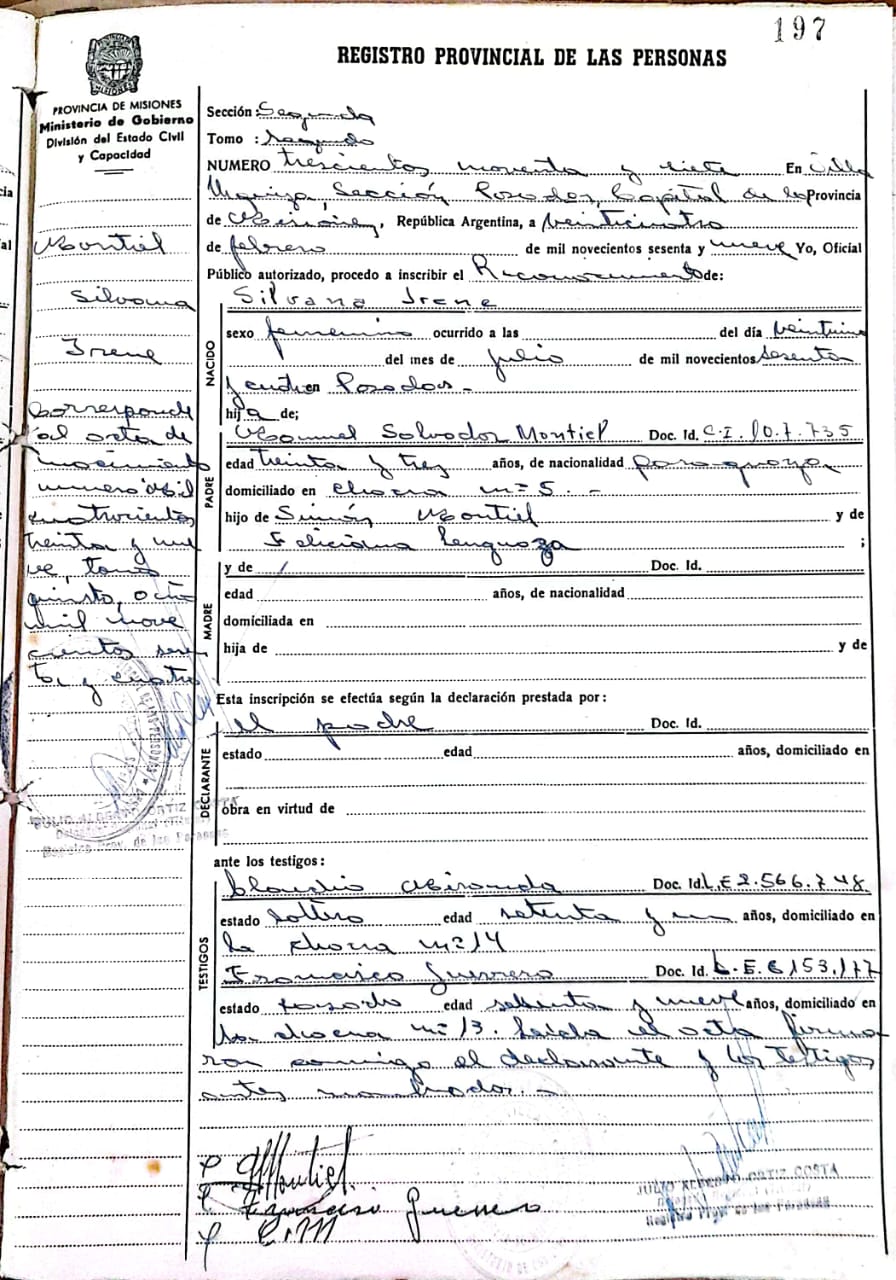 197
REGISTRO PROVINCIAL DE LAS PERSONAS
MISIONES
PROVINCIA DE MISIONES
Ministerio de Gobierno
División del Estado Civil
y Capacidad
Montiel
Silvana
Irene
Corresponde
al acta de
nacimiento
numero Mil
cuatrocientos
treinta y nue
ve, tomo
quinto, año
mil nove
cientos sesen
ta y cuatro
Sección: Segunda
Tomo : segundo
NUMERO trescientos noventa y siete En Villa
Urquiza, Sección Posadas, Capital de la Provincia
de Misiones, República Argentina, a veinticuatro
de febrero de mil novecientos sesenta y nueve Yo, Oficial
Público autorizado, procedo a inscribir el Reconocimiento de:
NACIDO
Silvana Irene
sexo femenino ocurrido a las del día veintiuno
del mes de julio de mil novecientos sesenta
y cuatro en Posadas.-
hija de;
PADRE
Manuel Salvador Montiel Doc. Id. C.I. 10.7.735
edad treinta y tres años, de nacionalidad paraguaya
domiciliado en chacra nº 5. -
hijo de Simón Montiel y de
Feliciana ;
MADRE
y de Doc. Id.
edad años, de nacionalidad
domiciliada en
hija de y de
Esta inscripción se efectúa según la declaración prestada por:
DECLARANTE
el padre Doc. Id.
estado edad años, domiciliado en
obra en virtud de
ante los testigos:
TESTIGOS
Claudio Miranda Doc. Id. L.E 2.566.748
estado soltero edad setenta y un años, domiciliado en
la chacra nº 14
Francisco Guerrero Doc. Id. L.E. 6153.177
estado casado edad y nueve años, domiciliado en
la chacra nº 13. Leída el acta firma
ron conmigo el declarante y los testigos
antes nombrados. -
Montiel
Francisco Guerrero
C.M
JULIO ALBERTO ORTIZ COSTA
Registro Prov. de las Personas
JULIO ALBERTO ORTIZ COSTA
Registro Prov. de las Personas